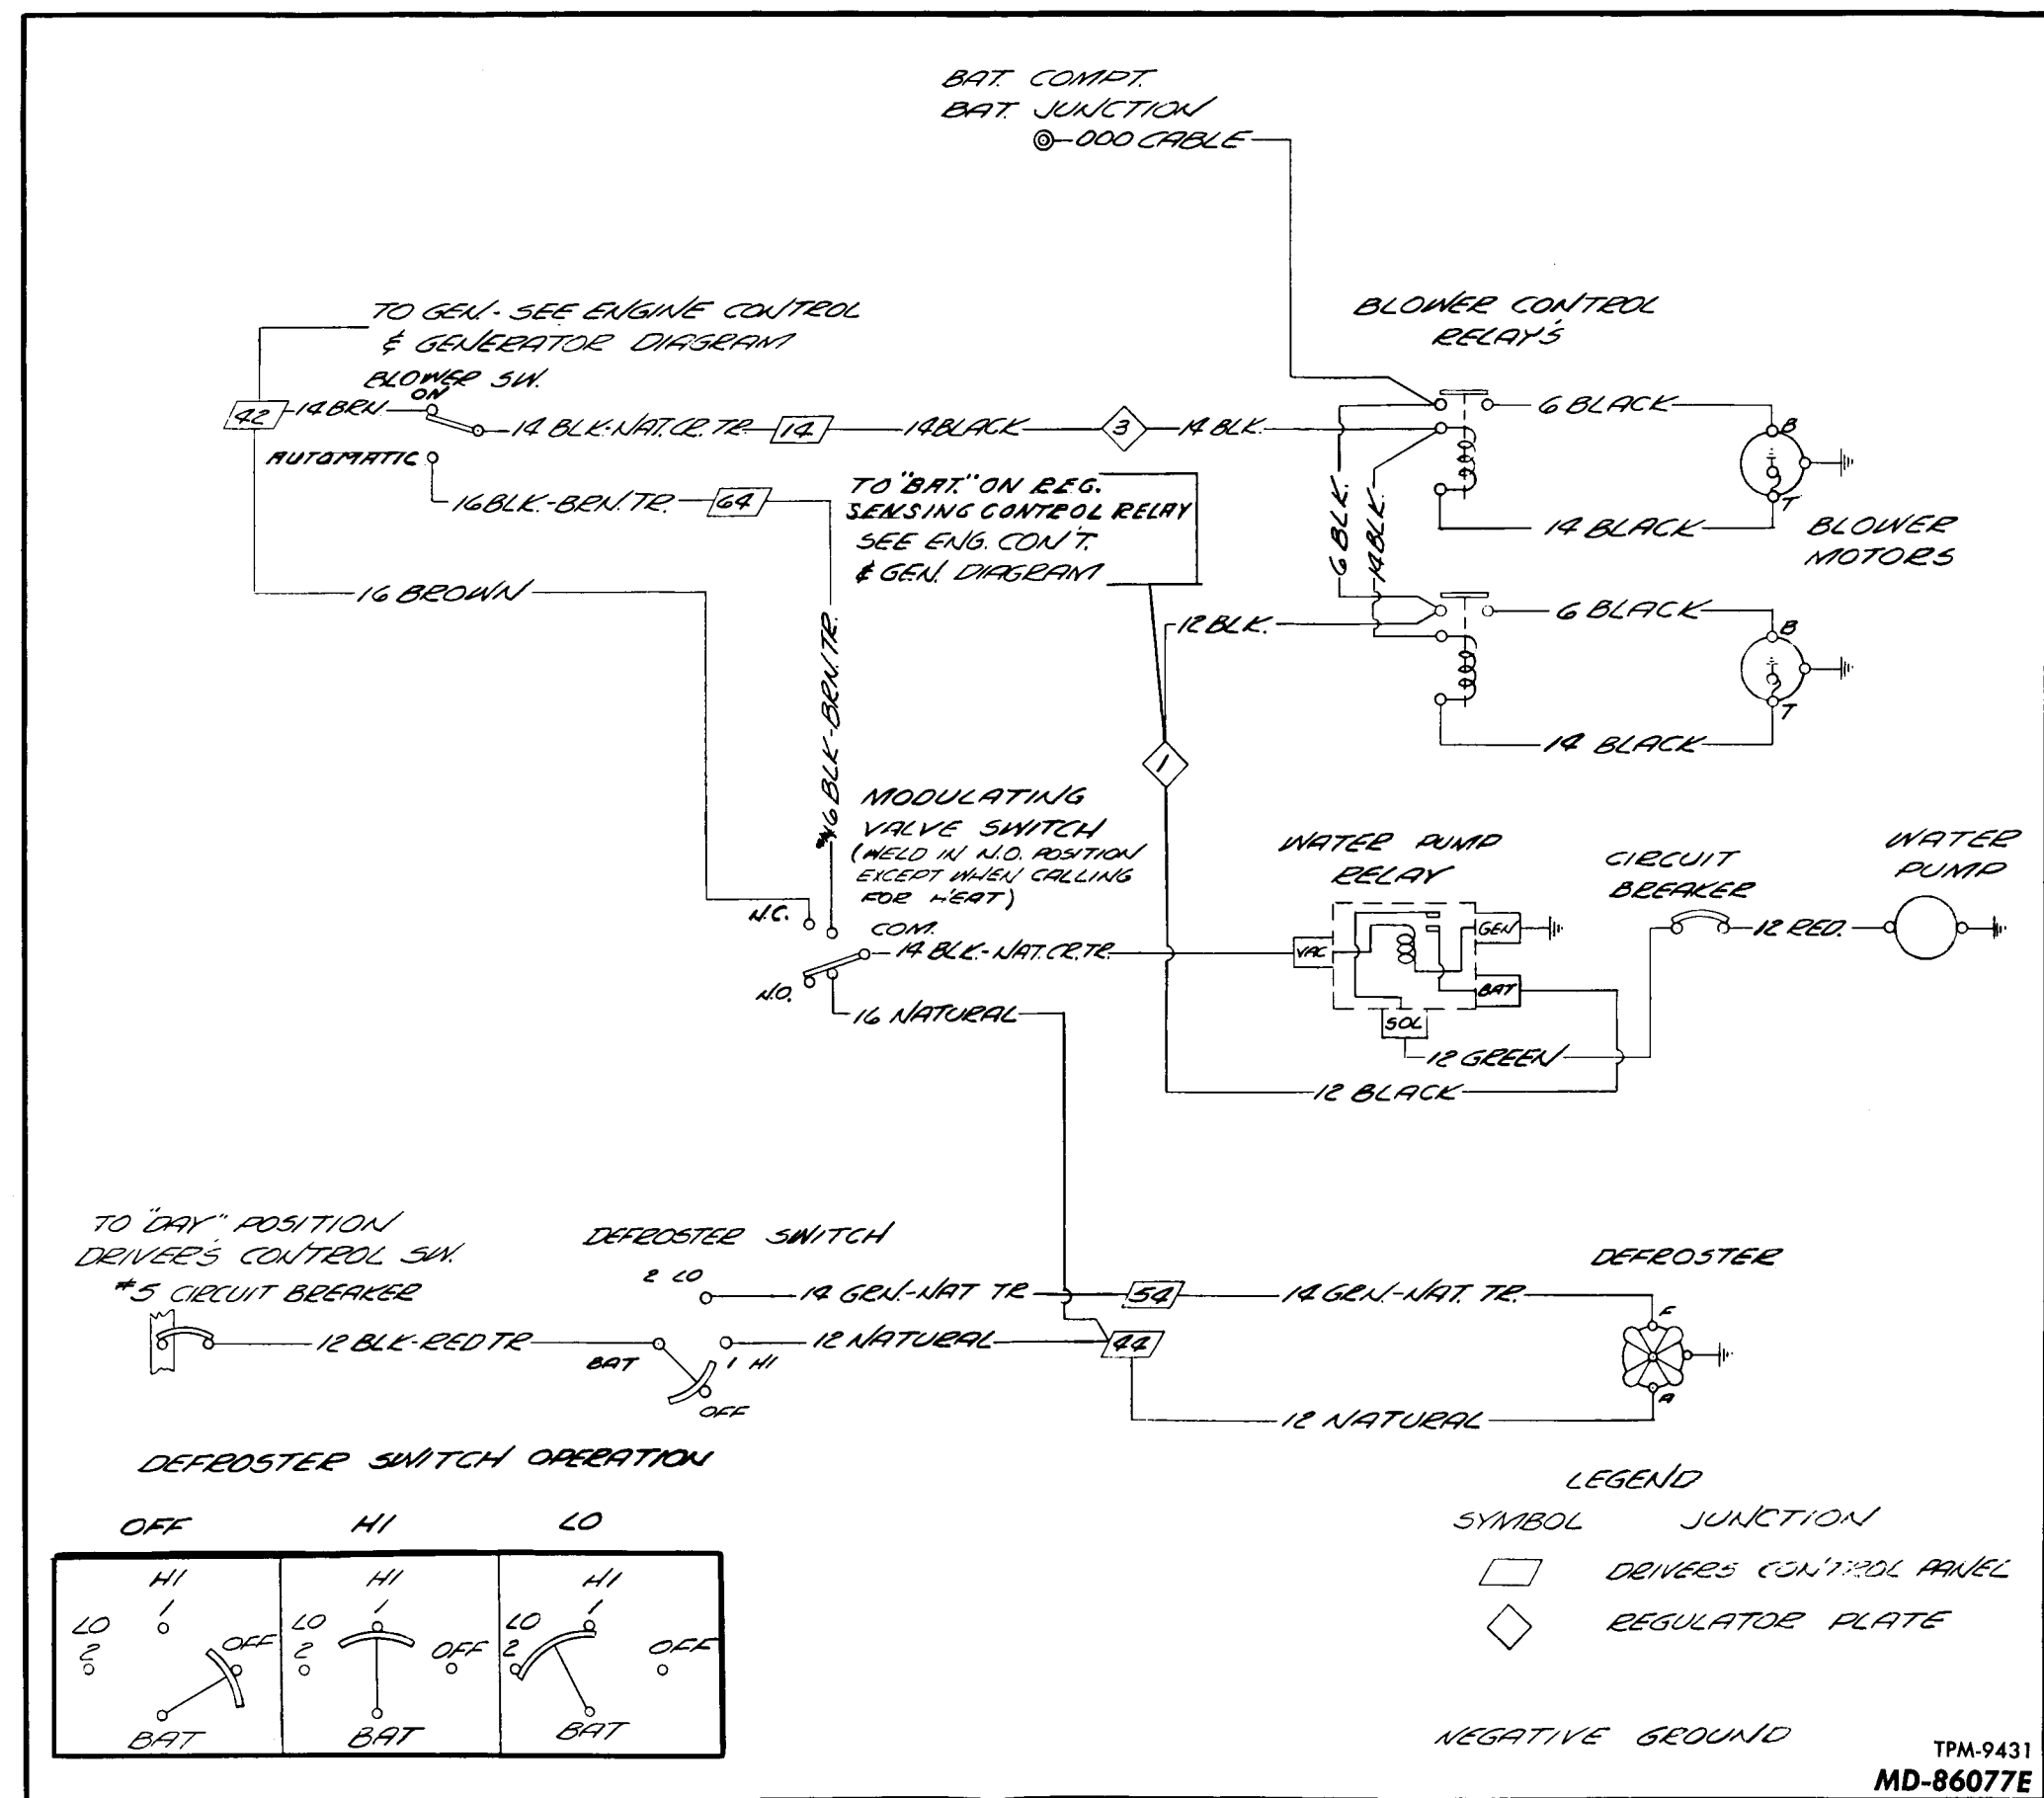 BAT. COMPT.
BAT. JUNCTION
000 CABLE
TO GEN- SEE ENGINE CONTROL
& GENERATOR DIAGRAM
BLOWER SW.
ON
42
14 BRN
14 BLK-NAT.CR. TR.
14
14 BLACK
3
14 BLK.
AUTOMATIC
16 BLK.-BRN. TR.
64
BLOWER CONTROL
RELAY'S
6 BLACK
B
T
14 BLACK
BLOWER
MOTORS
6 BLK.
14 BLK.
TO "BAT." ON REG.
SENSING CONTROL RELAY
SEE ENG. CON'T.
& GEN. DIAGRAM
16 BROWN
12 BLK.
6 BLACK
B
T
14 BLACK
16 BLK-BRN.TR.
1
MODULATING
VALVE SWITCH
(HELD IN N.O. POSITION
EXCEPT WHEN CALLING
FOR HEAT)
N.C.
COM.
14 BLK.-NAT.CR.TR.
N.O.
16 NATURAL
WATER PUMP
RELAY
VAC
GEN
BAT
SOL
CIRCUIT
BREAKER
12 RED.
WATER
PUMP
12 GREEN
12 BLACK
TO "DAY" POSITION
DRIVER'S CONTROL SW.
#5 CIRCUIT BREAKER
12 BLK-RED TR
DEFROSTER SWITCH
2 LO
14 GRN.-NAT TR
54
14 GRN.-NAT. TR.
BAT
1 HI
OFF
12 NATURAL
44
12 NATURAL
DEFROSTER
F
A
DEFROSTER SWITCH OPERATION
OFF HI LO
HI
1
LO
2
OFF
BAT
HI
1
LO
2
OFF
BAT
HI
1
LO
2
OFF
BAT
LEGEND
SYMBOL JUNCTION
DRIVERS CON'TROL PANEL
REGULATOR PLATE
NEGATIVE GROUND
TPM-9431
MD-86077E